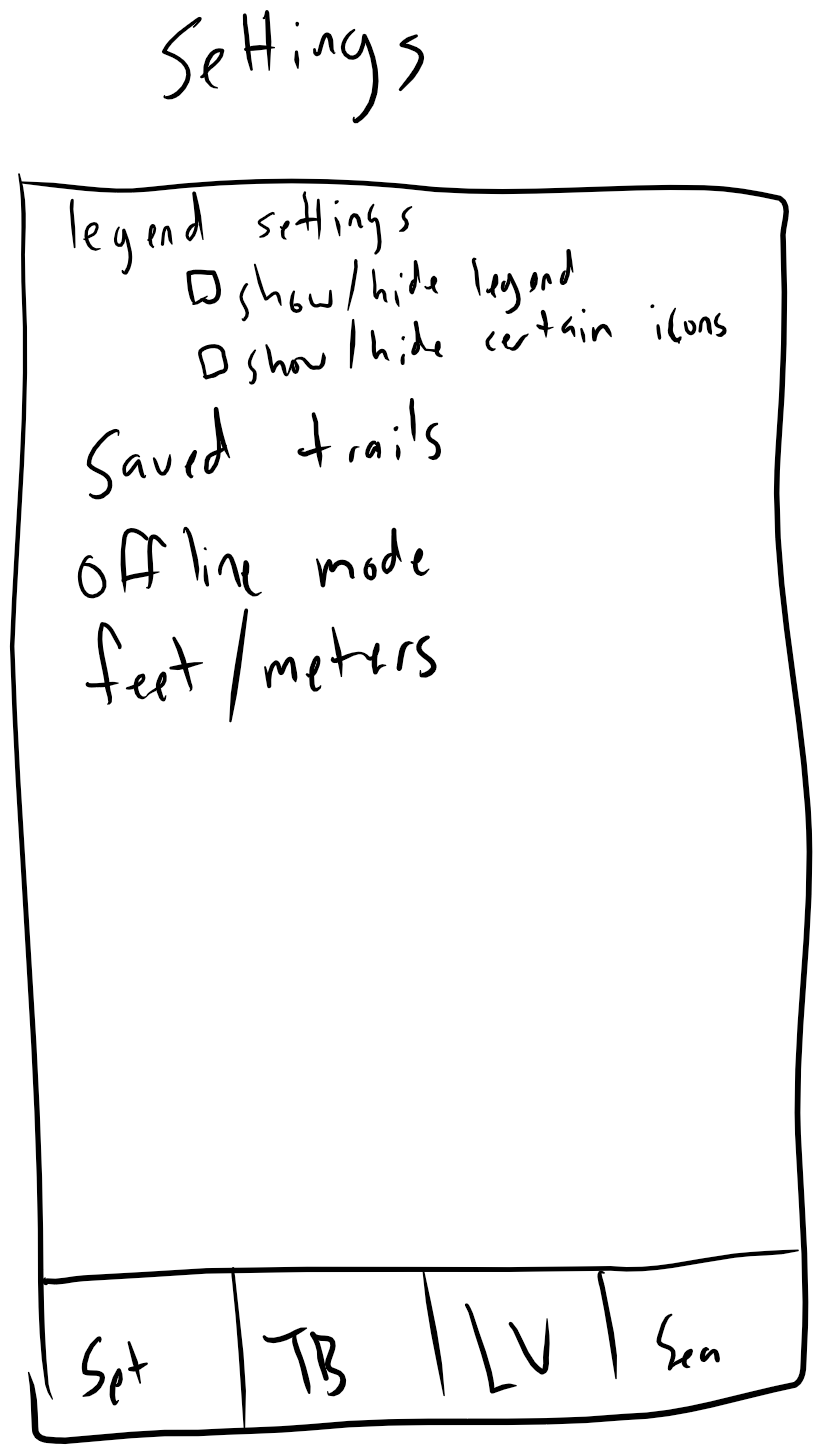 Settings
legend settings
show/hide legend
show/hide certain icons
Saved trails
offline mode
feet/meters
Set TB LV Sea